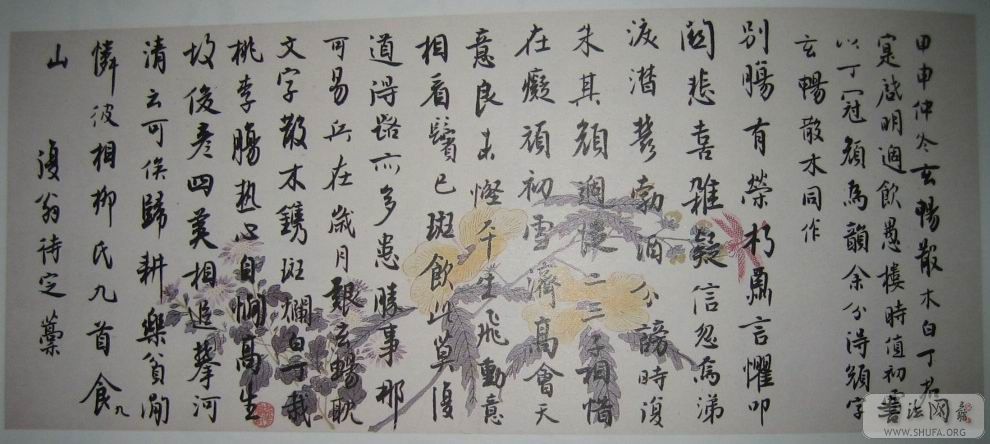 甲申仲冬玄暢散木白丁君
寔啟明過飲愚樓時值初雪
以丁冠顏為韻余分得顏字
玄暢散木同作
別腸有榮朽肅言懼叩
關悲喜雜疑信忽為涕
淚潸鬱勃酒分謗時復
朱其顏過從二三子相惜
在癡頑初雪濟高會天
意良未慳平生飛動意
相看鬢已斑飲此莫復
道得路亦多患勝事那
可易兵在歲月艱玄暢耽
文字散木鐫斑斕白丁栽
桃李腸熱心自憪高生
俊彥四美相追攀河
清云可俟歸耕樂貧閒
憐彼相柳氏九首食九
山 復翁待定藁
書法网
WWW.SHUFA.ORG